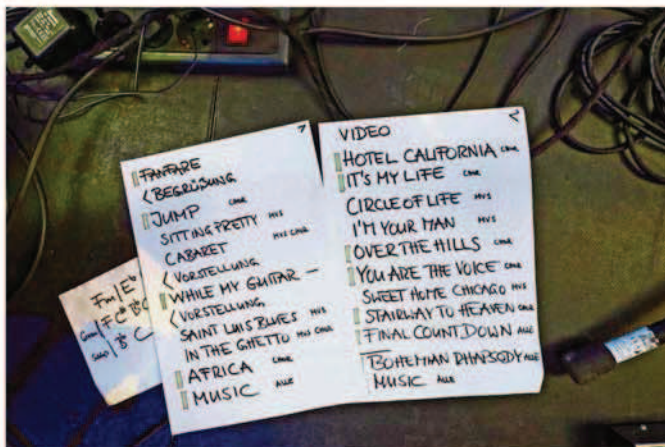 1
FANFARE
< BEGRÜSUNG
JUMP CHOR
SITTING PRETTY MVS
CABARET MVS CHOR
< VORSTELLUNG
WHILE MY GUITAR —
< VORSTELLUNG
SAINT LUIS BLUES MVS
IN THE GHETTO MVS CHOR
AFRICA CHOR
MUSIC ALLE
2
VIDEO
HOTEL CALIFORNIA CHOR
IT'S MY LIFE CHOR
CIRCLE OF LIFE MVS
I'M YOUR MAN MVS
OVER THE HILLS CHOR
YOU ARE THE VOICE CHOR
SWEET HOME CHICAGO MVS
STAIRWAY TO HEAVEN CHOR
FINAL COUNTDOWN ALLE
BOHEMIAN RHAPSODY ALLE
MUSIC ALLE
Fm | Eb